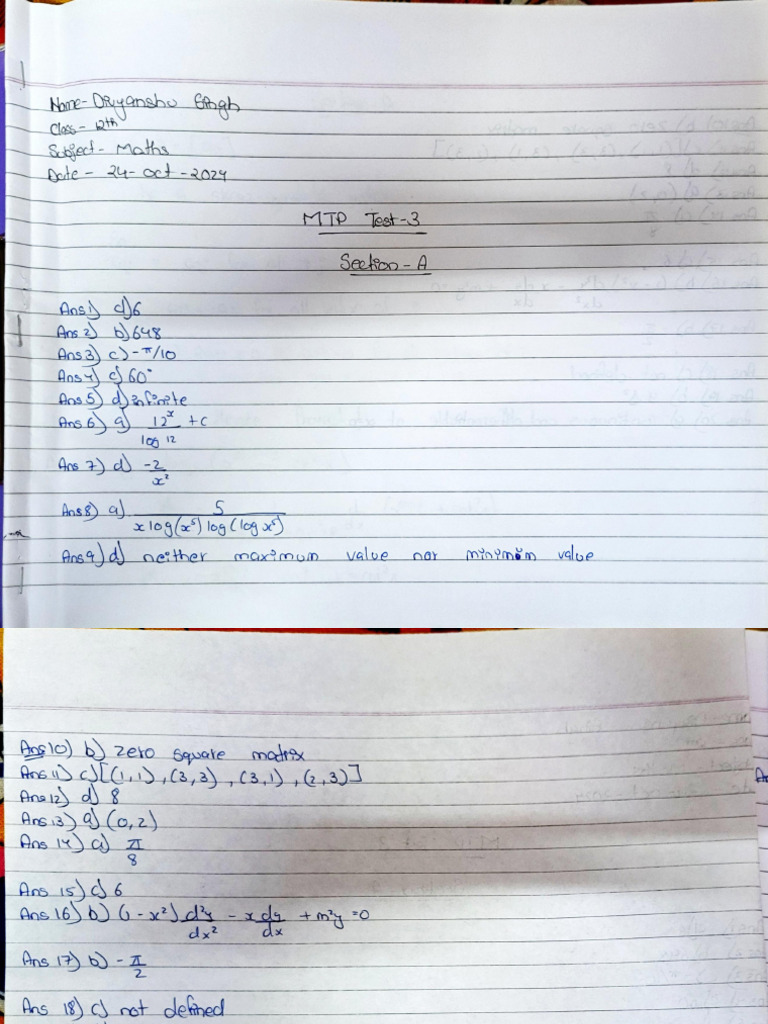 Name- Divyanshu Singh
Class- 12th
Subject- Maths
Date - 24-Oct-2024
MTP Test-3
Section-A
Ans 1) d) 6
Ans 2) b) 648
Ans 3) c) -π/10
Ans 4) c) 60°
Ans 5) d) infinite
Ans 6) a) 12^x / log 12 + c
Ans 7) d) -2/x²
Ans 8) a) 5 / x log(x⁵) log(log x⁵)
Ans 9) d) neither maximum value nor minimum value
Ans 10) b) zero square matrix
Ans 11) c) [(1,1), (3,3), (3,1), (2,3)]
Ans 12) d) 8
Ans 13) a) (0,2)
Ans 14) a) π/8
Ans 15) c) 6
Ans 16) b) (1-x²) d²y/dx² - x dy/dx + m²y = 0
Ans 17) b) -π/2
Ans 18) c) not defined